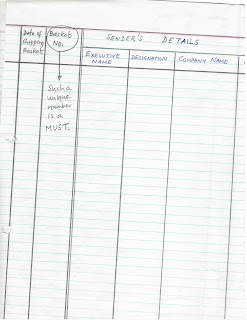 Date of
Shipping
Basket
Basket
No.
SENDER'S DETAILS
EXECUTIVE
NAME
DESIGNATION
COMPANY NAME
Such a
unique
number
is a
MUST.